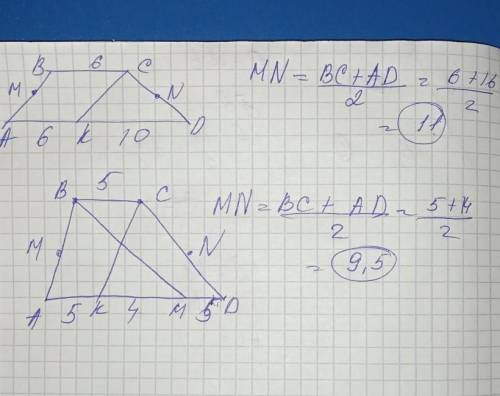 B 6 C
M N
A 6 K 10 D
MN = BC + AD / 2 = 6 + 16 / 2
= 11
B 5 C
M N
A 5 K 4 M 5 D
MN = BC + AD / 2 = 5 + 14 / 2
= 9,5